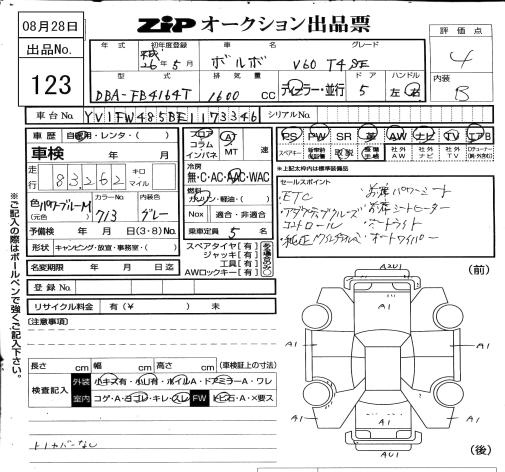 08月28日
ZiP オークション出品票
出品No.
123
年式 初年度登録 車名 グレード
平成 26年5月 ボルボ V60 T4 SE
型式 排気量 ドア ハンドル
DBA-FB4164T 1600 CC ディーラー・並行 5 左・右
評価点
4
内装
B
車台No. YV1FW485BE1173346 シリアルNo.
車歴 自家用・レンタ・( )
車検 年 月
走行 83,262 キロ マイル
色 パワーブルーM (元色) カラーNo. 713 内装 グレー
予備検 年 月 日(3・8)No.
形状 キャンピング・放宣・事務室・( )
名変期限 年 月 日迄
登録No.
リサイクル料金 有(¥ ) 未
(注意事項)
フロア コラム インパネ AT MT 速
冷房
無・C・AC・AAC・WAC
燃料
ガソリン・軽油・( )
Nox 適合・非適合
乗車定員 5 名
スペアタイヤ[有]
ジャッキ[有]
工具[有]
AWロックキー[有]
PS PW SR 革 AW ナビ TV エアB
スペアキー 取説 社外AW 社外ナビ 社外TV
★上記太枠内は標準装備品
セールスポイント
・ETC ・お席パワーシート
・アダプティブクルーズ ・お席シートヒーター
コントロール ・オートライト
・オートワイパー
長さ cm 幅 cm 高さ cm (車検証上の寸法)
検査記入
外装 小キズ有・小凹有・ホイルA・ドアミラーA・ワレ
室内 コゲ・A・ヨゴレ・キレ・スレ FW トビ石・A・×要ス
トノカバーなし
※ご記入の際はボールペンで強くご記入下さい。
(前)
A2U1
A1
A1
A1
A1
A1
A1
AU1
(後)